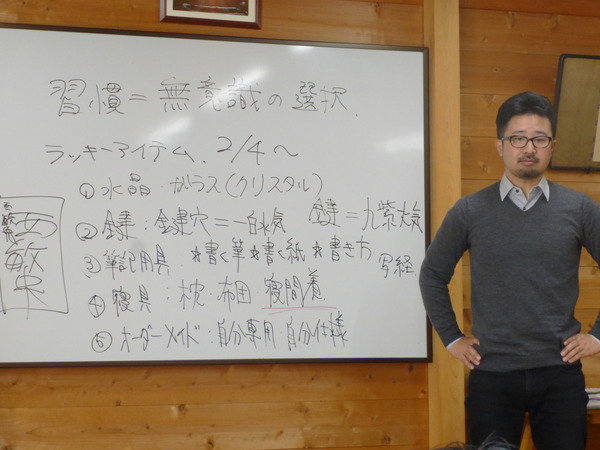 習慣=無意識の選択.
ラッキーアイテム. 2/4~
①水晶 ガラス(クリスタル)
②鍵:鍵穴=一白水気 鍵=九紫火気
③筆記用具 *書く筆*書く紙*書き方 写経
④寝具:枕:布団 寝間着
⑤オーダーメイド:自分専用 自分仕様